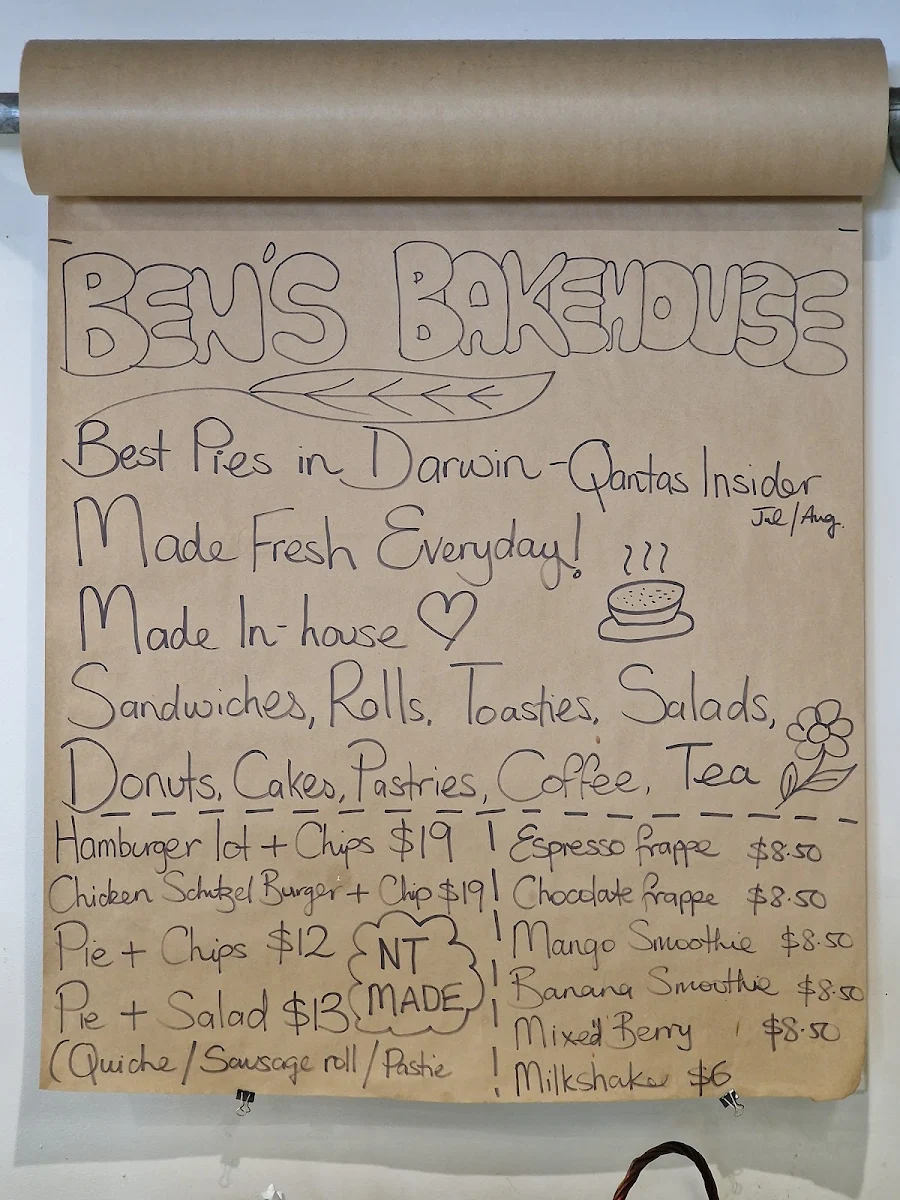 BEN'S BAKEHOUSE
Best Pies in Darwin - Qantas Insider
Jul/Aug.
Made Fresh Everyday!
Made In-house
Sandwiches, Rolls, Toasties, Salads,
Donuts, Cakes, Pastries, Coffee, Tea
Hamburger lot + Chips $19
Chicken Schitzel Burger + Chip $19
Pie + Chips $12
Pie + Salad $13
(Quiche/Sausage roll/Pastie
NT
MADE
Espresso frappe $8.50
Chocolate frappe $8.50
Mango Smoothie $8.50
Banana Smoothie $8.50
Mixed Berry $8.50
Milkshake $6